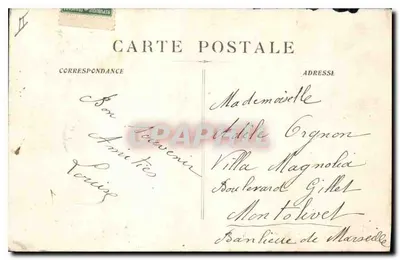 CARTE POSTALE
CORRESPONDANCE
ADRESSE
Bon Souvenir
Amitiés
Louise
Mademoiselle
Adèle Orgnon
Villa Magnolia
Boulevard Gillet
Montolivet
Banlieue de Marseille